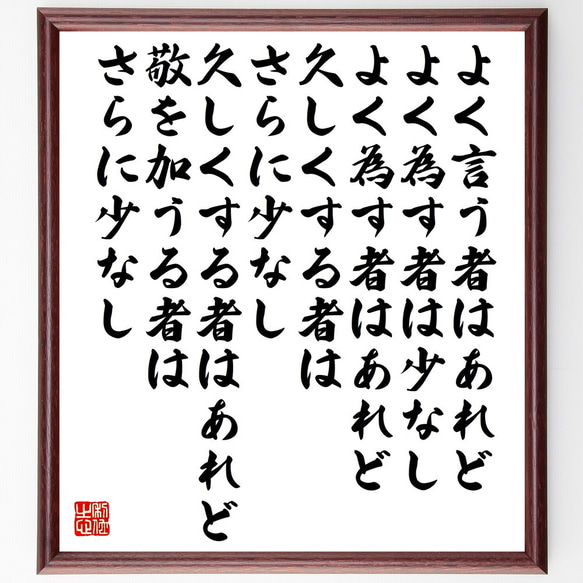 よく言う者はあれど
よく為す者は少なし
よく為す者はあれど
久しくする者は
さらに少なし
久しくする者はあれど
敬を加うる者は
さらに少なし